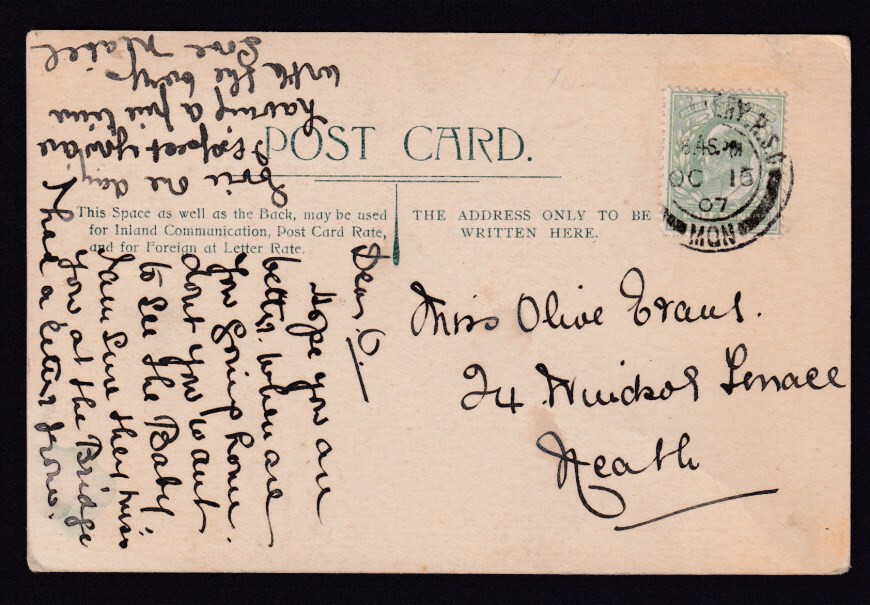 POST CARD.
This Space as well as the Back, may be used
for Inland Communication, Post Card Rate,
and for Foreign at Letter Rate.
THE ADDRESS ONLY TO BE
WRITTEN HERE.
OC 15
07
MON
Miss Olive Evans.
24 Windsor Terrace
Neath
Dear O.
Hope you are
better. When are
you going home.
dont you want
to see the Baby.
I am sure they miss
you at the Bridge
I had a letter from
Evie one day
I expect you are
having a fine time
with the baby
Love Mabel